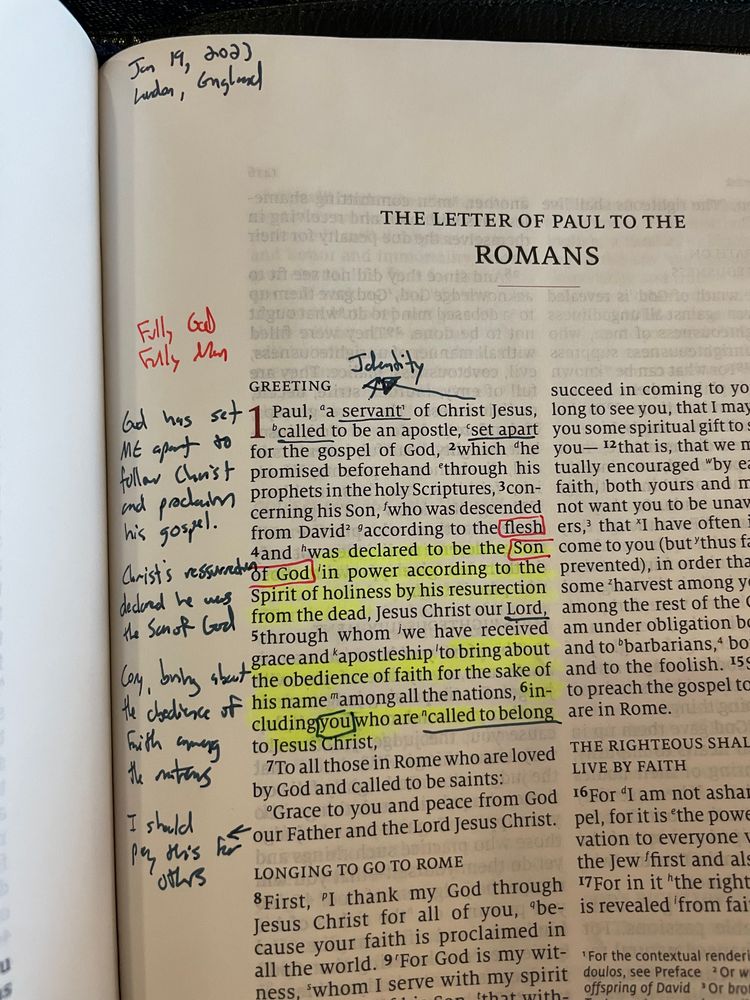 Jan 19, 2023
London, England
THE LETTER OF PAUL TO THE
ROMANS
Fully God
Fully Man
Identity
God has set
ME apart to
follow Christ
and proclaim
his gospel.
Christ's ressurection
declared he was
the Son of God
bring about
the obedience of
Faith among
the nations
I should
Pray this for
others
GREETING
1 Paul, ᵃa servant¹ of Christ Jesus,
ᵇcalled to be an apostle, ᶜset apart
for the gospel of God, ²which ᵈhe
promised beforehand ᵉthrough his
prophets in the holy Scriptures, ³con-
cerning his Son, ᶠwho was descended
from David² ᵍaccording to the flesh
⁴and ʰwas declared to be the Son
of God ⁱin power according to the
Spirit of holiness by his resurrection
from the dead, Jesus Christ our Lord,
⁵through whom ʲwe have received
grace and ᵏapostleship ˡto bring about
the obedience of faith for the sake of
his name ᵐamong all the nations, ⁶in-
cluding you who are ⁿcalled to belong
to Jesus Christ,
⁷To all those in Rome who are loved
by God and called to be saints:
ᵒGrace to you and peace from God
our Father and the Lord Jesus Christ.
LONGING TO GO TO ROME
⁸First, ᵖI thank my God through
Jesus Christ for all of you, ᑫbe-
cause your faith is proclaimed in
all the world. ⁹ʳFor God is my wit-
ness, ˢwhom I serve with my spirit
succeed in coming to yo
long to see you, that I may
you some spiritual gift to s
you—¹²that is, that we m
tually encouraged ʷby ea
faith, both yours and m
not want you to be unav
ers,³ that ˣI have often i
come to you (but ʸthus fa
prevented), in order tha
some ᶻharvest among y
among the rest of the G
am under obligation bo
and to ᵇbarbarians,⁴ bo
and to the foolish. ¹⁵s
to preach the gospel to
are in Rome.
THE RIGHTEOUS SHAL
LIVE BY FAITH
¹⁶For ᵈI am not ashar
pel, for it is ᵉthe powe
vation to everyone v
the Jew ᶠfirst and als
¹⁷For in it ʰthe right
is revealed ⁱfrom fai
¹ For the contextual renderi
doulos, see Preface ² Or w
offspring of David ³ Or bro